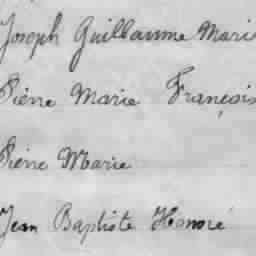 Joseph Guillaume Mari
Pierre Marie François
Pierre Marie
Jean Baptiste Honoré